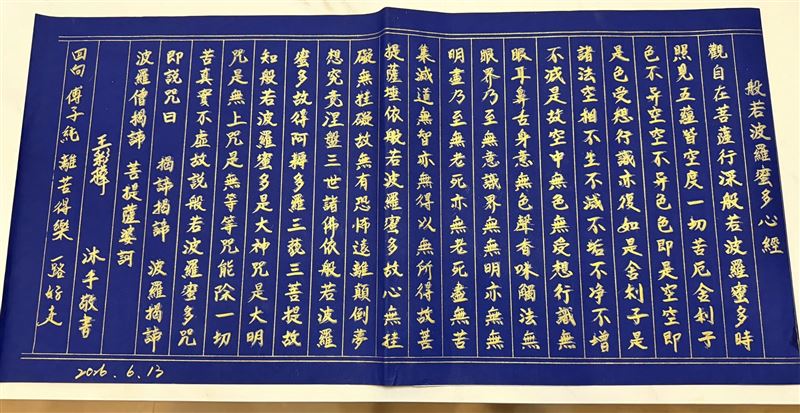 般若波羅蜜多心經
觀自在菩薩行深般若波羅蜜多時
照見五蘊皆空度一切苦厄舍利子
色不异空空不异色色即是空空即
是色受想行識亦復如是舍利子是
諸法空相不生不滅不垢不净不增
不減是故空中無色無受想行識無
眼耳鼻舌身意無色聲香味觸法無
眼界乃至無意識界無無明亦無無
明盡乃至無老死亦無老死盡無苦
集滅道無智亦無得以無所得故菩
提薩埵依般若波羅蜜多故心無挂
礙無挂礙故無有恐怖遠離顛倒夢
想究竟涅盤三世諸佛依般若波羅
蜜多故得阿耨多羅三藐三菩提故
知般若波羅蜜多是大神咒是大明
咒是無上咒是無等等咒能除一切
苦真實不虛故說般若波羅蜜多咒
即說咒曰 揭諦揭諦 波羅揭諦
波羅僧揭諦 菩提薩婆訶
王彩樺 沐手敬書
回向 傅子純 離苦得樂 一路好走
2026.6.13